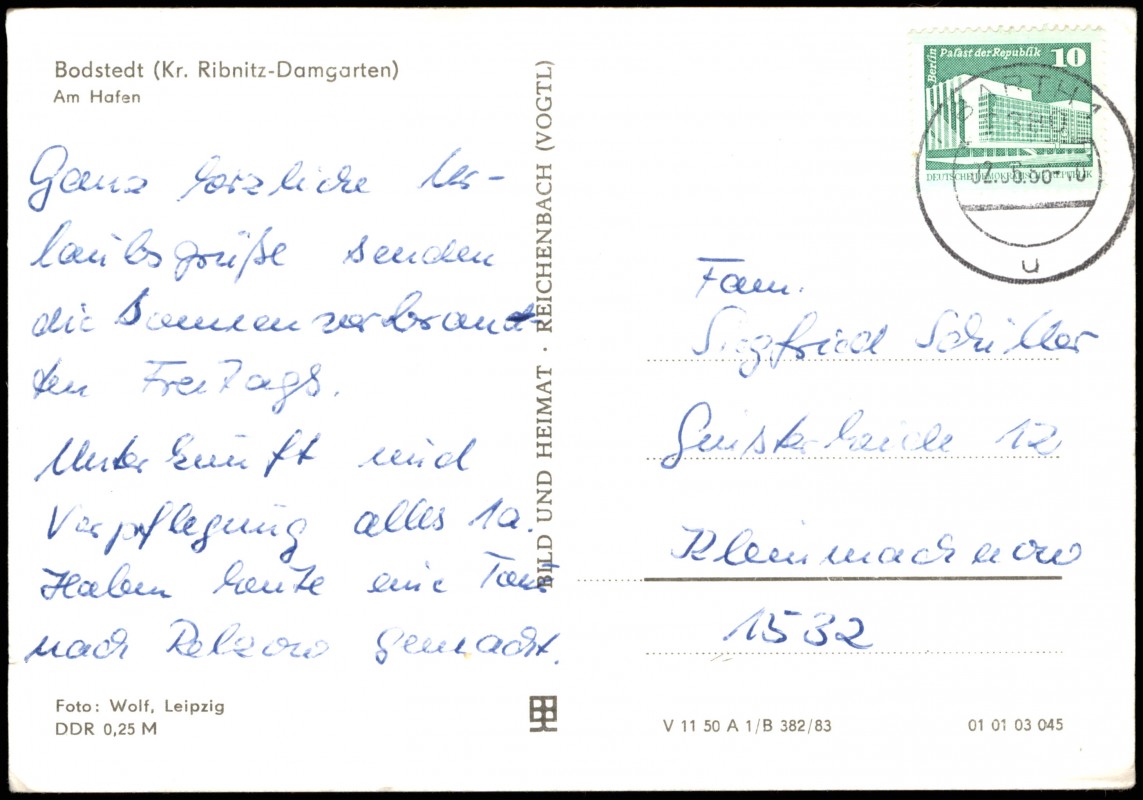 Bodstedt (Kr. Ribnitz-Damgarten)
Am Hafen
Ganz herzliche Ur-
laubsgrüße senden
die Sonnenverbrann-
ten Freitags.
Unterkunft und
Verpflegung alles 1a.
Haben heute eine Tour
nach Relzow gemacht.
Foto: Wolf, Leipzig
DDR 0,25 M
BILD UND HEIMAT · REICHENBACH (VOGTL)
Berlin Palast der Republik 10
DEUTSCHE DEMOKRATISCHE REPUBLIK
BARTH 1
u
Fam.
Siegfried Schüller
Ginsterheide 12
Kleinmachnow
1532
V 11 50 A 1/B 382/83
01 01 03 045